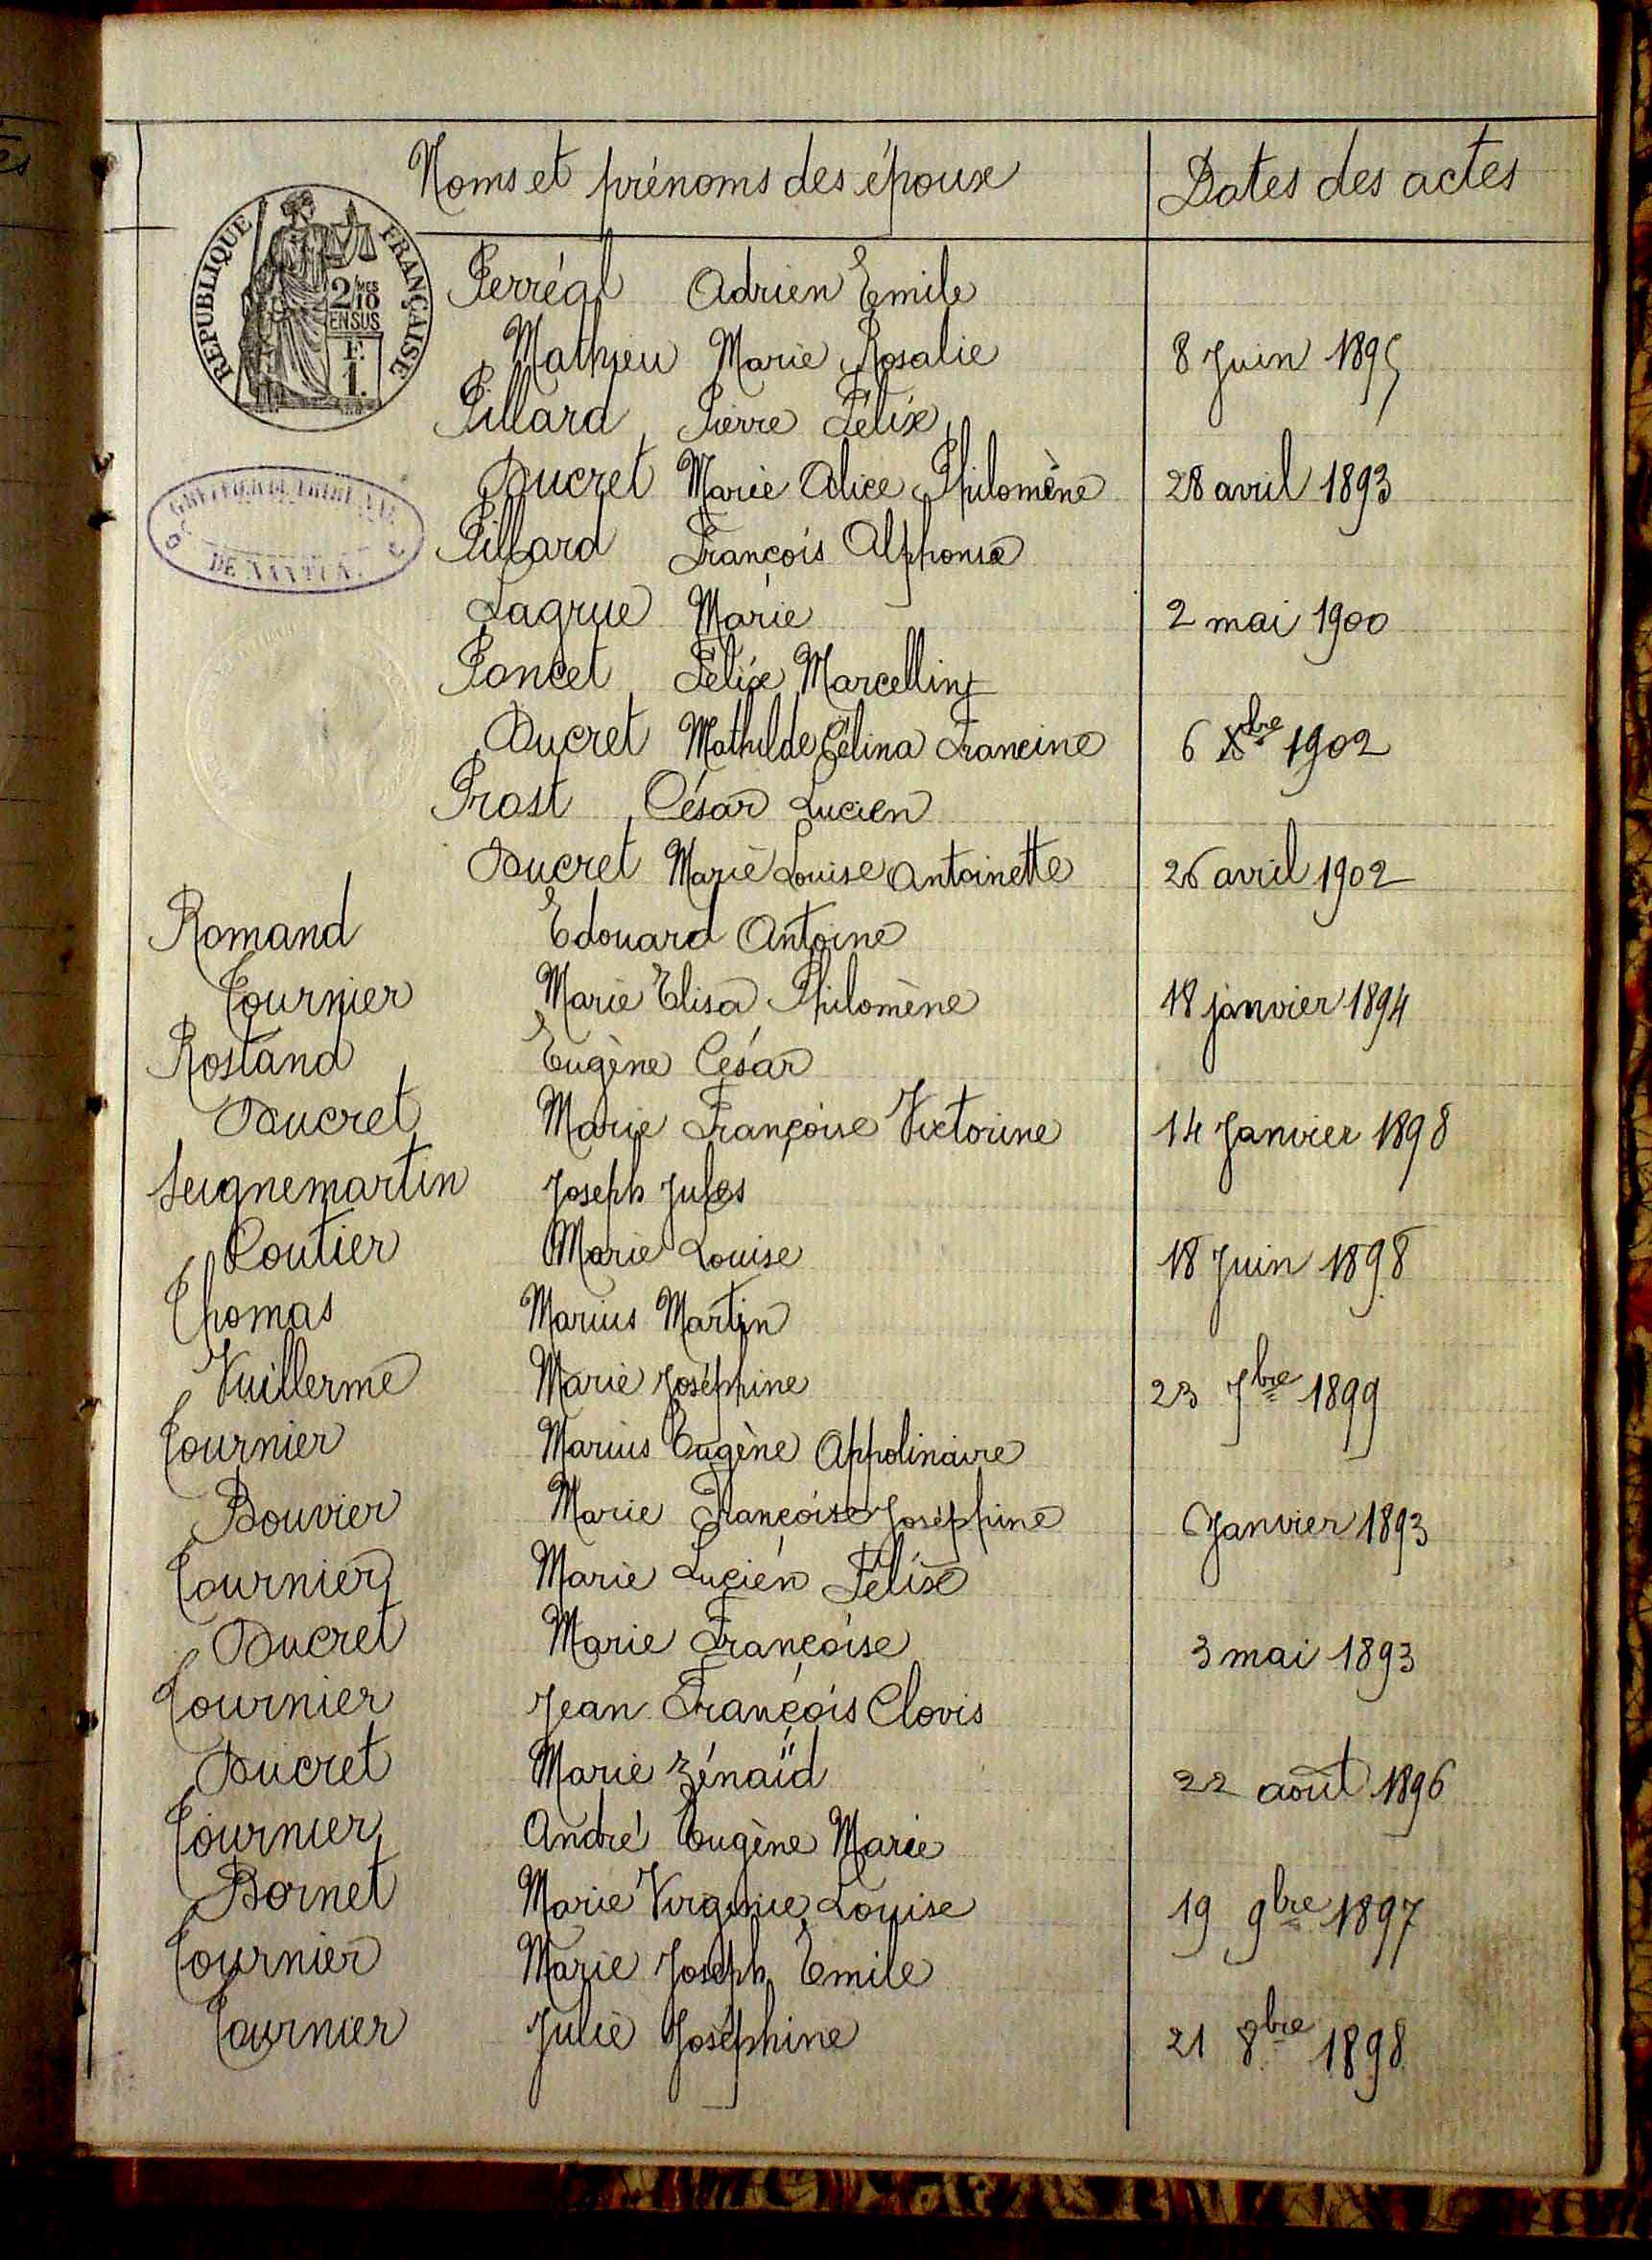 Noms et prénoms des époux Dates des actes
REPUBLIQUE FRANÇAISE
2/10 MES
EN SUS
F.
1.
Perréal Adrien Emile
Mathieu Marie Rosalie 8 Juin 1895
Pillard Pierre Félix
Ducret Marie Alice Philomène 28 avril 1893
DE NANTUA
Pillard François Alphonse
Lagrue Marie 2 mai 1900
Poncet Félix Marcellin
Ducret Mathilde Célina Francine 6 Xbre 1902
Prost César Lucien
Ducret Marie Louise Antoinette 26 avril 1902
Romand Edouard Antoine
Tournier Marie Elisa Philomène 18 janvier 1894
Rostand Eugène César
Ducret Marie Françoise Victorine 14 Janvier 1898
Seignemartin Joseph Jules
Coutier Marie Louise 18 Juin 1898
Thomas Marius Martin
Vuillerme Marie Joséphine 23 7bre 1899
Tournier Marius Eugène Appolinaire
Bouvier Marie Françoise Joséphine 6 Janvier 1893
Tournier Marie Lucien Félix
Ducret Marie Françoise 3 mai 1893
Tournier Jean François Clovis
Ducret Marie Zénaïd 22 août 1896
Tournier André Eugène Marie
Bornet Marie Virginie Louise 19 9bre 1897
Tournier Marie Joseph Emile
Tournier Julie Joséphine 21 8bre 1898